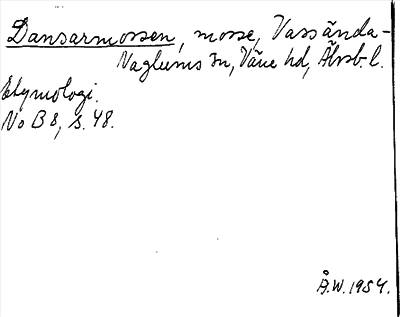 Dansarmossen, mosse, Vassända-
Naglums sn, Väne hd, Älvsb. l.
Etymologi.
No B 8, s. 48.
Å.W. 1954.